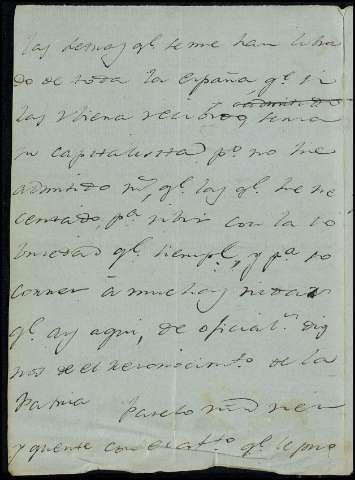 las letras q.e se me han libra
do de toda la España q.e si
las ubiera recibido seria
un capitalista p.o no he
admitido mas q.e las q.e he ne
cesitado p.a vivir con la so
briedad q.e siempre, y p.a so
correr á muchas viudas
q.e ay aqui, de oficial.s dig
nos de el reconocim.to de la
Patria
y q.e le pro